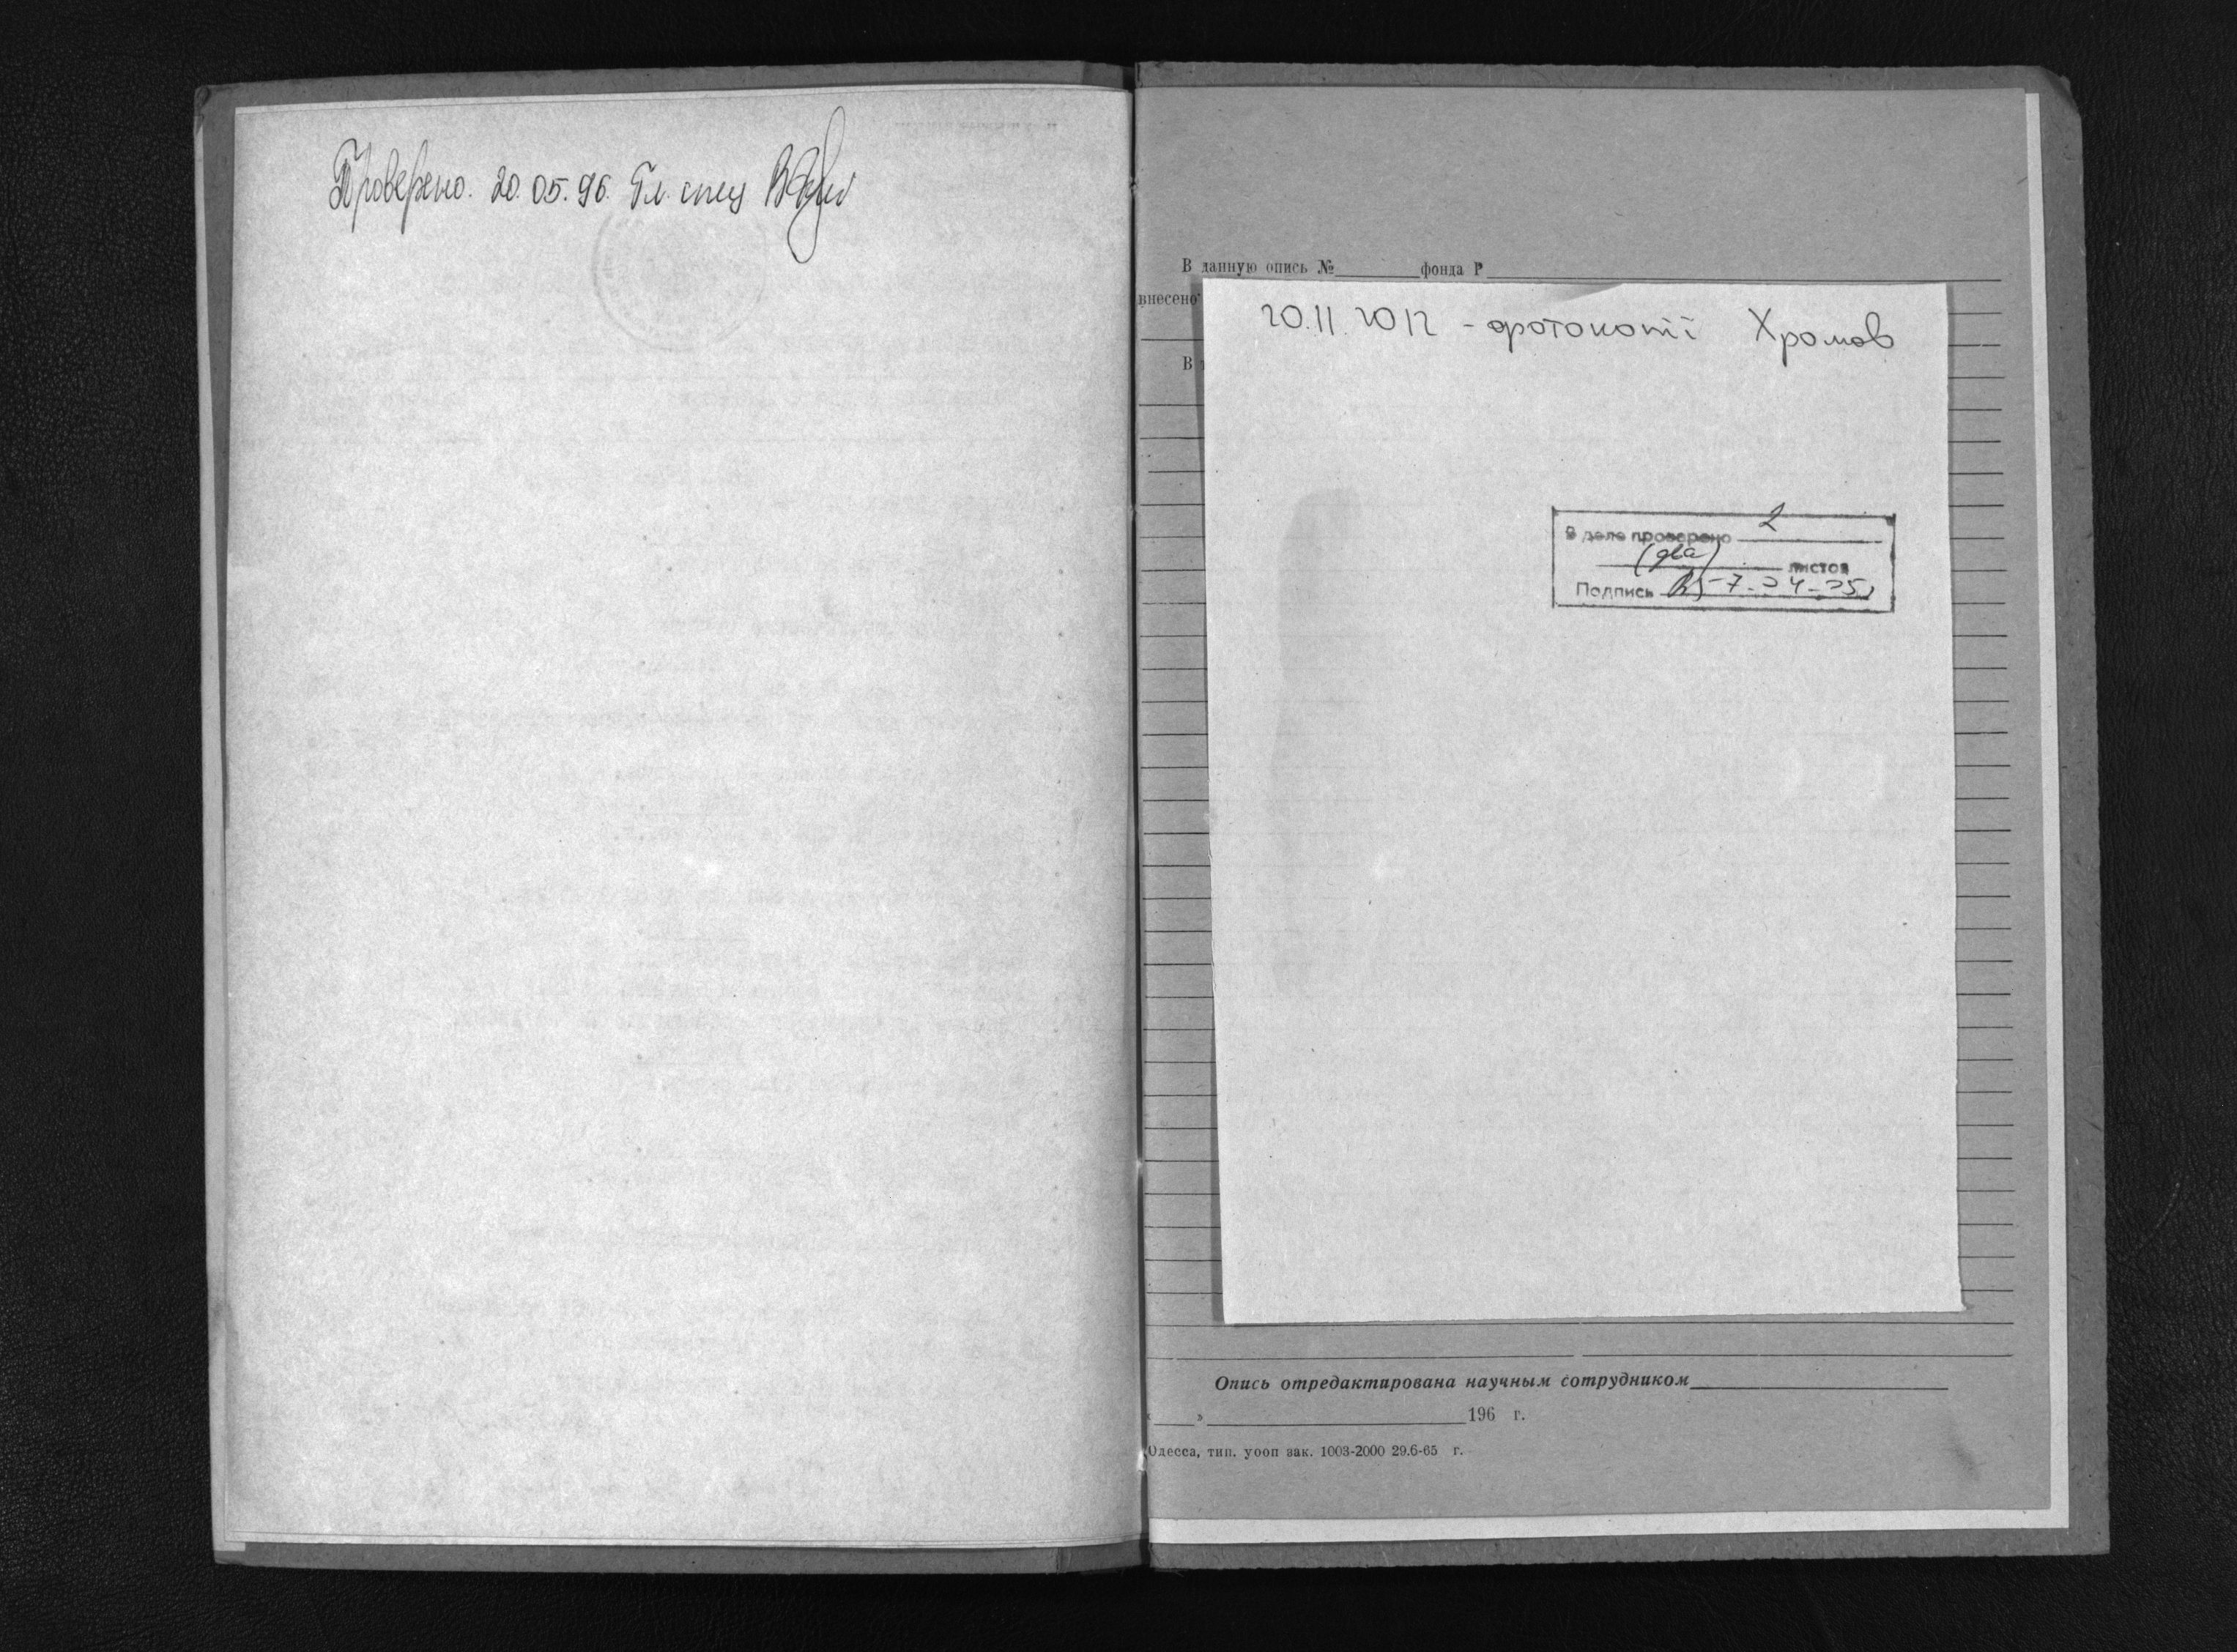 Проверено. 20.05.96. Гл. спец
В данную опись № фонда Р
внесено
В
20.11.2012 - фотокопії Хромов
В деле проверено 2
(два) листов
Подпись
Опись отредактирована научным сотрудником
« » 196 г.
Одесса, тип. уооп зак. 1003-2000 29.6-65 г.